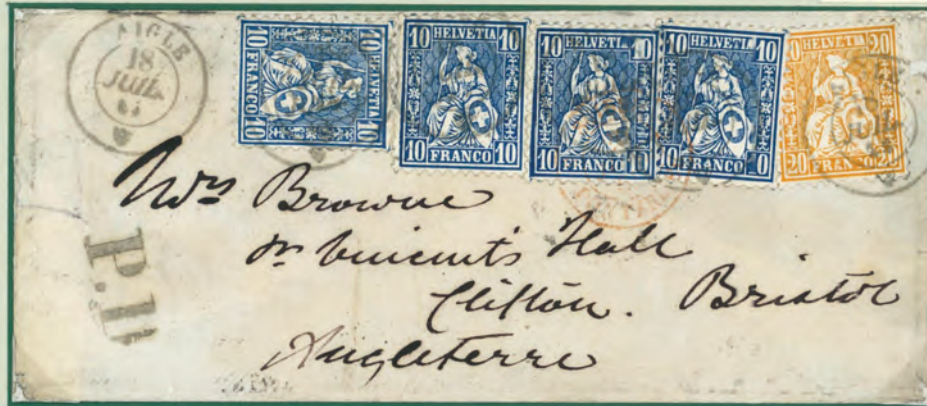 AIGLE
18
JUIL
10 HELVETIA 10
10 FRANCO 10
10 HELVETI
10 FRANCO 10
HELVETI 10
10 FRANCO 10
HELVETI 10
10 FRANCO 0
0 HELVETI 20
20 FRAN 20
JUIL
Mrs Browne
St Vincent's Hall
Clifton. Bristol
Angleterre
P.D